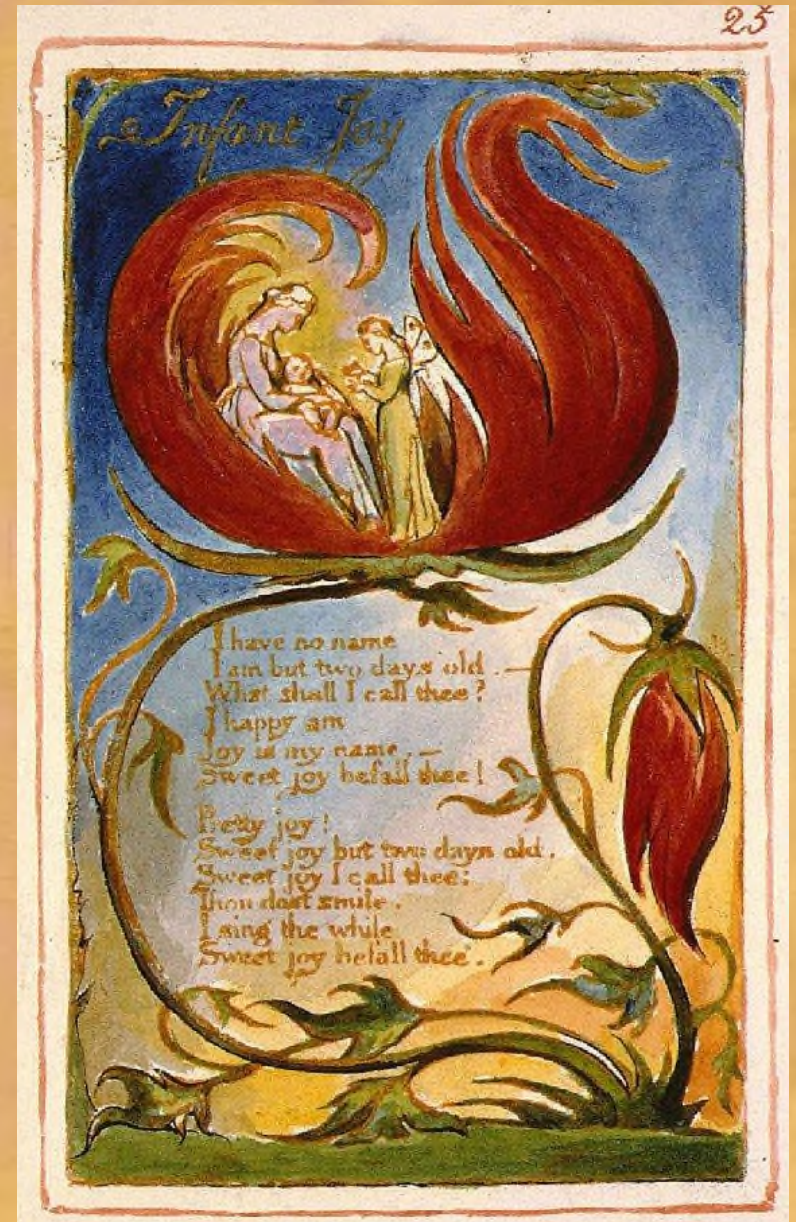 25
Infant Joy
I have no name
I am but two days old.—
What shall I call thee?
I happy am
Joy is my name.—
Sweet joy befall thee!
Pretty joy!
Sweet joy but two days old.
Sweet joy I call thee:
Thou dost smile.
I sing the while
Sweet joy befall thee.